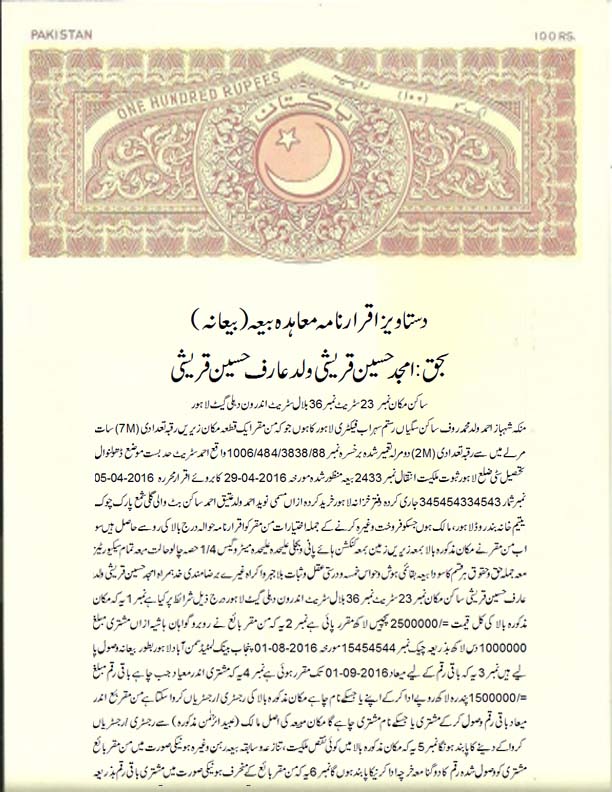 PAKISTAN 100 RS.
ONE HUNDRED RUPEES
پاکستان
ایک سو (۱۰۰) روپیہ
دستاویز اقرارنامہ معاہدہ بیعہ (بیعانہ)
بحق: امجد حسین قریشی ولد عارف حسین قریشی
ساکن مکان نمبر 23 سٹریٹ نمبر 36 بلال سٹریٹ اندرون دہلی گیٹ لاہور
منکہ شہباز احمد ولد محمد روف ساکن سگیاں رستم سہراب فیکٹری لاہور کا ہوں جو کہ من مقر ایک قطعہ مکان زیریں رقبہ تعدادی (7M) سات
مرلے میں سے رقبہ تعدادی (2M) دو مرلہ تعمیر شدہ بر خسرہ نمبر 1006/484/3838/88 واقع احمد سٹریٹ حد بست موضع ڈھلنوال
تحصیل سٹی ضلع لاہور ثبوت ملکیت انتقال نمبر 2433 بیعہ منظور شدہ مورخہ 29-04-2016 کا بروئے اقرار محررہ 05-04-2016
نمبر شمار 345454334543 جاری کردہ دفتر خزانہ لاہور خرید کردہ ازاں مسمی نوید احمد ولد عتیق احمد ساکن بٹ والی گلی شمع پارک چوک
یتیم خانہ بند روڈ لاہور، مالک ہوں جسکو فروخت وغیرہ کرنے کے جملہ اختیارات من مقر کو اقرارنامہ حوالہ درج بالا کی رو سے حاصل ہیں سو
اب من مقر نے مکان مذکورہ بالا بمعہ زیریں زمین بمعہ کنکشن ہائے پانی و بجلی علیحدہ علیحدہ میٹر و گیس 1/4 حصہ چالو حالت معہ تمام سیکورٹیز
معہ جملہ حق و حقوق ہر قسم کا سودا بیعہ بقائمی ہوش و حواس خمسہ و درستی عقل و ثبات بلا جبر و اکراہ غیرے برضامندی خود ہمراہ امجد حسین قریشی ولد
عارف حسین قریشی ساکن مکان نمبر 23 سٹریٹ نمبر 36 بلال سٹریٹ اندرون دہلی گیٹ لاہور درج ذیل شرائط پر کیا ہے نمبر 1 یہ کہ مکان
مذکورہ بالا کی کل قیمت =/2500000 پچیس لاکھ مقرر پائی ہے نمبر 2 یہ کہ من مقر بائع نے روبرو گواہان باشیہ ازاں مشتری مبلغ
1000000 دس لاکھ بذریعہ چیک نمبر 15454544 مورخہ 01-08-2016 پنجاب بینک لمیٹڈ سمن آباد لاہور بطور بیعانہ وصول پا
لیے ہیں نمبر 3 یہ کہ باقی رقم کے لیے میعاد 01-09-2016 تک مقرر ہوئی ہے نمبر 4 یہ کہ مشتری اندر معیاد جب چاہے باقی رقم مبلغ
=/1500000 پندرہ لاکھ روپے ادا کر کے اپنے یا جسکے نام چاہے مکان مذکورہ بالا کی رجسٹری / رجسٹریاں کروا سکتا ہے من مقر بائع اندر
میعاد باقی رقم وصول کر کے مشتری یا جسکے نام مشتری چاہے گا مکان مبیعہ کی اصل مالک (عبید الرحمٰن مذکورہ) سے رجسٹری / رجسٹریاں
کروا کے دینے کا پابند ہونگا نمبر 5 یہ کہ مکان مذکورہ بالا میں کوئی نقص ملکیت، تنازعہ و سابقہ بیعہ رہن وغیرہ ہونیکی صورت میں من مقر بائع
مشتری کو وصول شدہ رقم کا دوگنا معہ خرچہ ادا کرنیکا پابند ہوں گا نمبر 6 یہ کہ من مقر بائع کے منحرف ہونیکی صورت میں مشتری باقی رقم بذریعہ